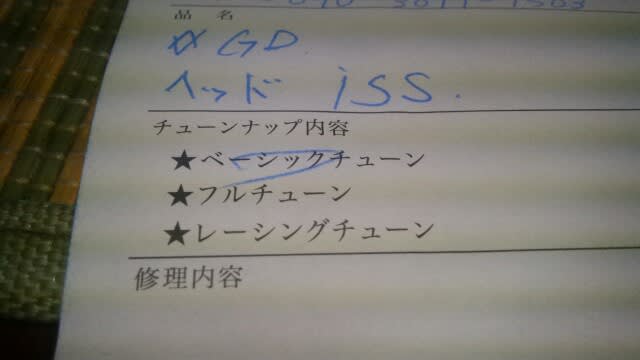 品 名
GD
ヘッド iSS.
チューンナップ内容
★ベーシックチューン
★フルチューン
★レーシングチューン
修理内容